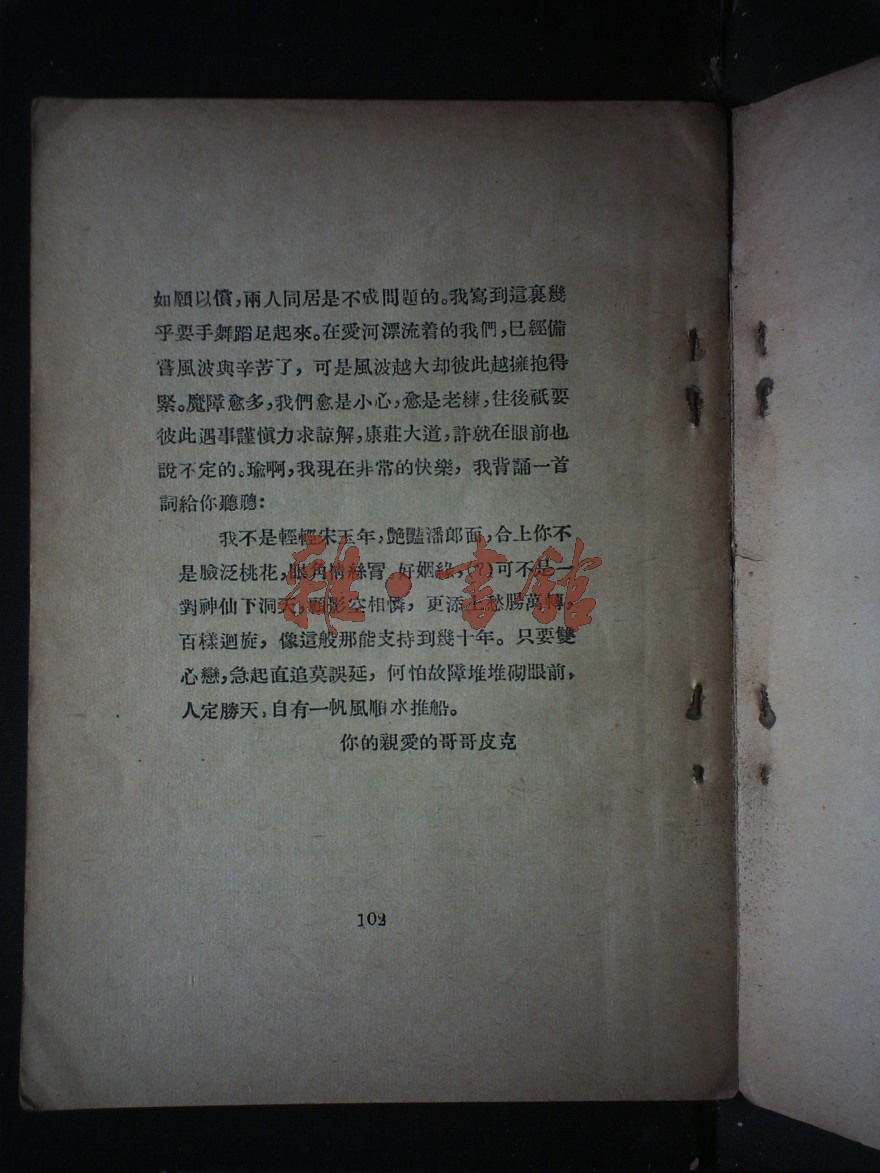 如願以償,兩人同居是不成問題的。我寫到這裏幾
乎要手舞蹈足起來。在愛河漂流着的我們,已經備
嘗風波與辛苦了,可是風波越大却彼此越擁抱得
緊。魔障愈多,我們愈是小心,愈是老練,往後祇要
彼此遇事謹愼力求諒解,康莊大道,許就在眼前也
說不定的。瑜啊,我現在非常的快樂,我背誦一首
詞給你聽聽:
我不是輕輕宋玉年,艷豔潘郎面,合上你不
是臉泛桃花,眼角情絲罥 好姻緣,(?)可不是一
對神仙下洞天,顧影空相憐,更添上愁腸萬轉,
百樣迴旋,像這般那能支持到幾十年。只要雙
心戀,急起直追莫誤延,何怕故障堆堆砌眼前,
人定勝天,自有一帆風順水推船。
你的親愛的哥哥皮克
102
雅·書館